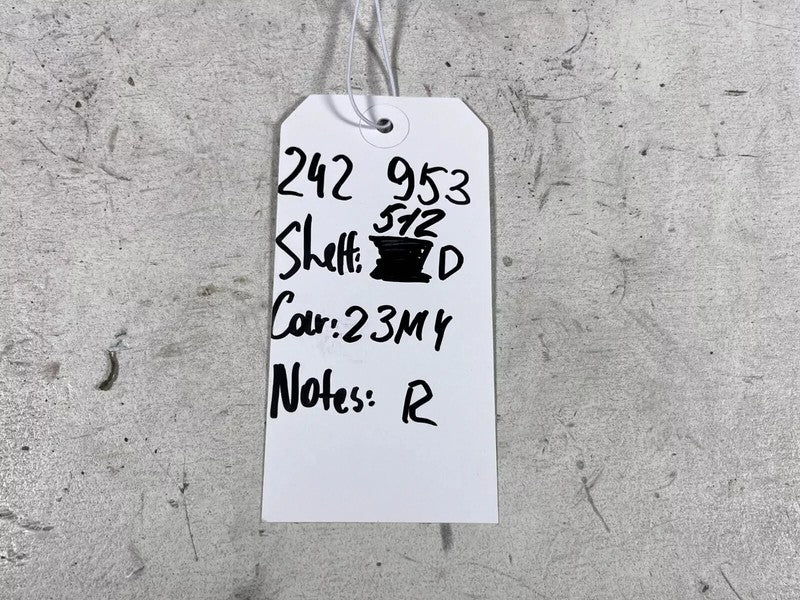 242 953
512
Shelf: D
Car: 23MY
Notes: R